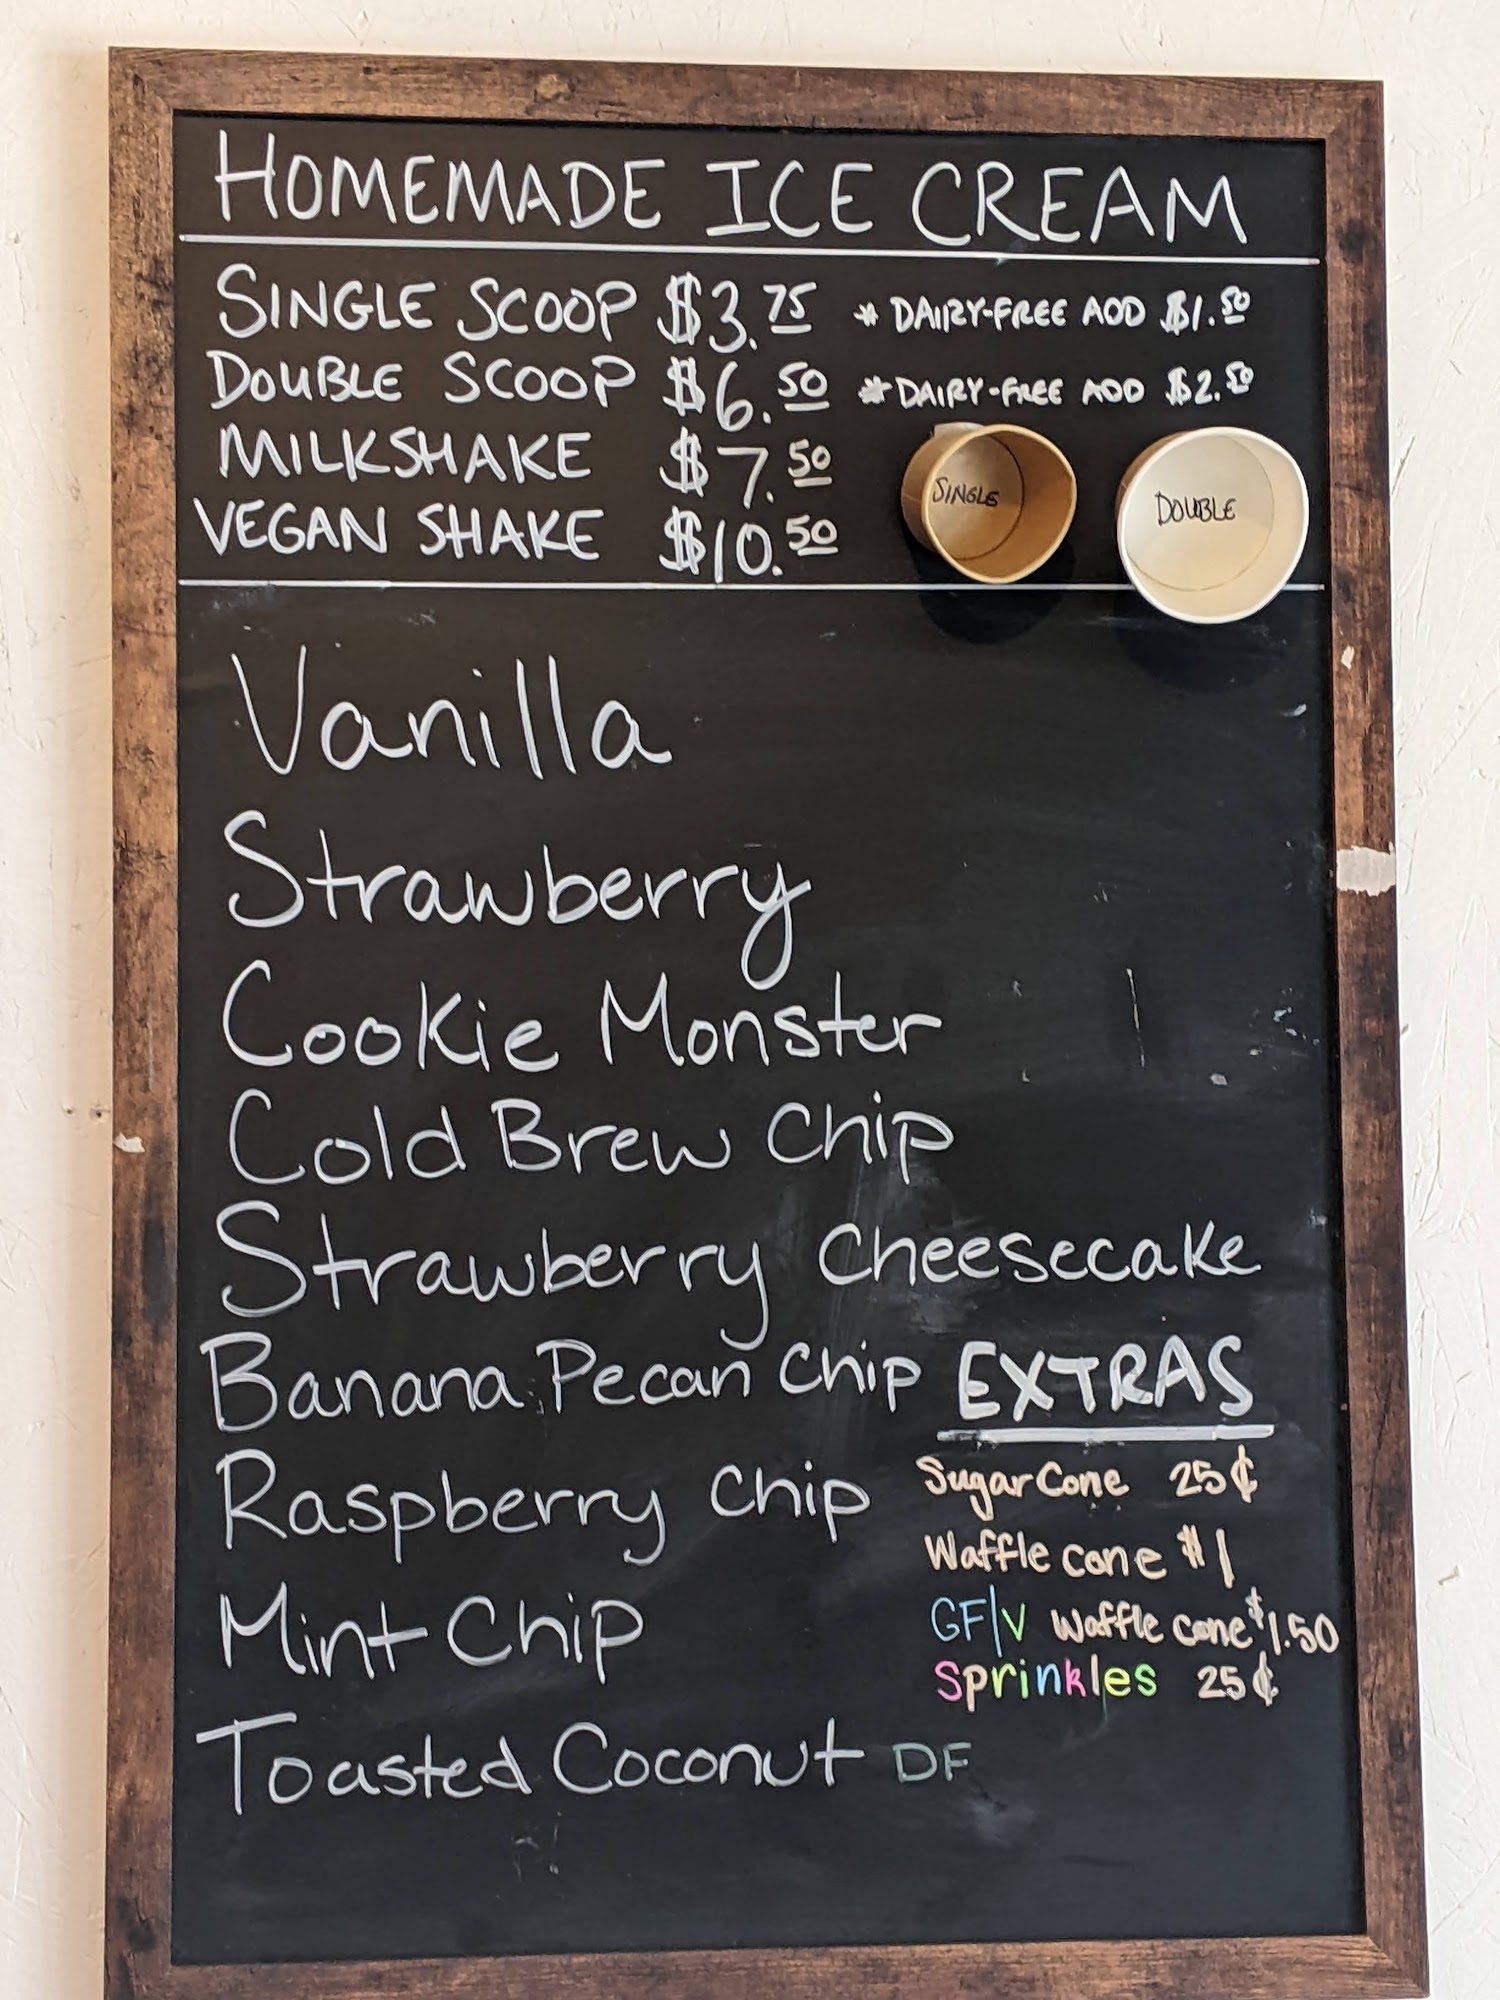 HOMEMADE ICE CREAM
SINGLE SCOOP $3.75 * DAIRY-FREE ADD $1.50
DOUBLE SCOOP $6.50 * DAIRY-FREE ADD $2.50
MILKSHAKE $7.50
VEGAN SHAKE $10.50
SINGLE
DOUBLE
Vanilla
Strawberry
Cookie Monster
Cold Brew Chip
Strawberry Cheesecake
Banana Pecan Chip
Raspberry Chip
Mint Chip
Toasted Coconut DF
EXTRAS
Sugar Cone 25¢
Waffle cone $1
GF/V Waffle cone $1.50
Sprinkles 25¢